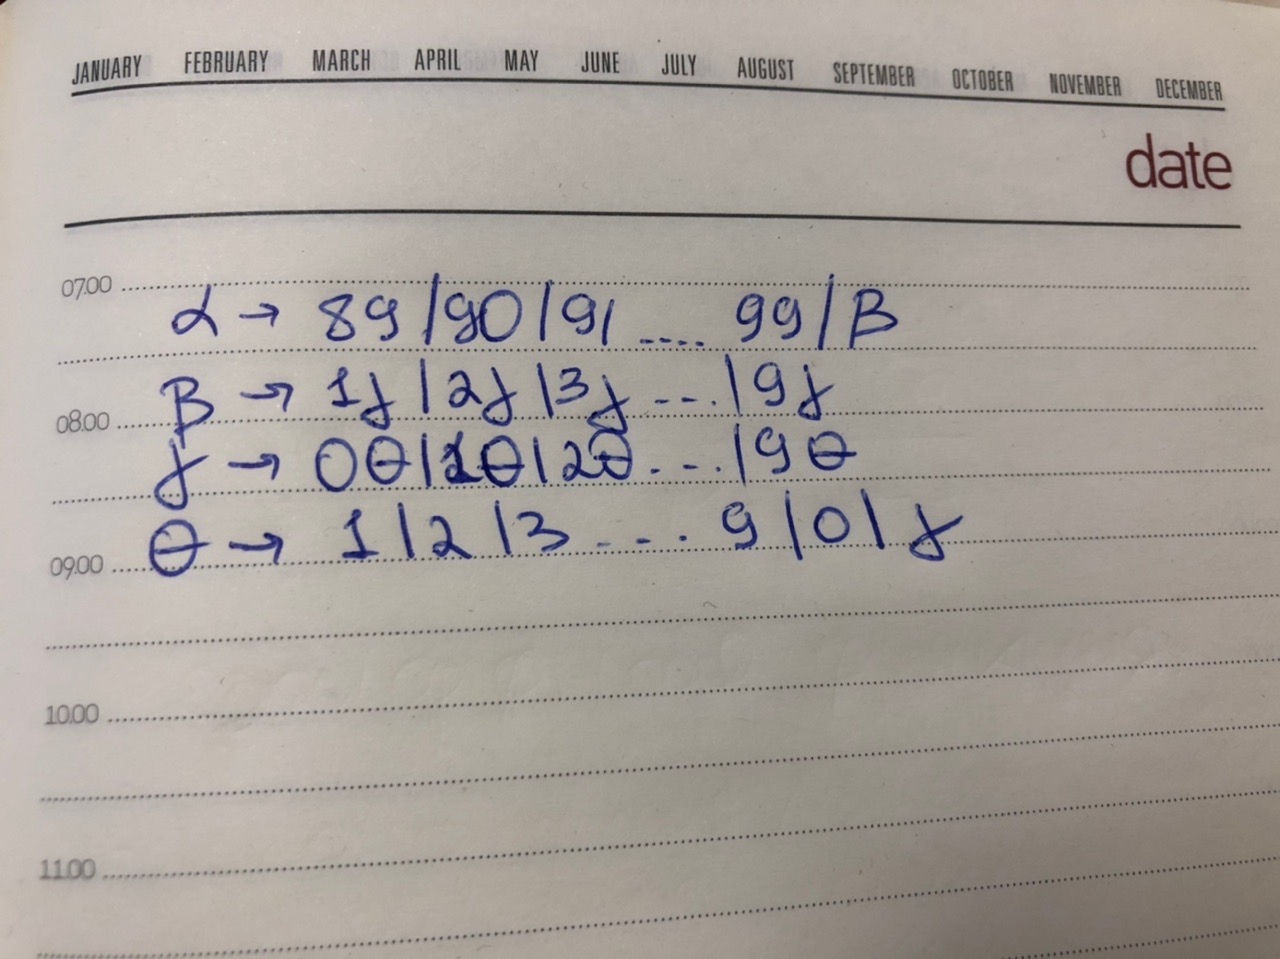 JANUARY FEBRUARY MARCH APRIL MAY JUNE JULY AUGUST SEPTEMBER OCTOBER NOVEMBER DECEMBER
date
07.00
α → 89 / 90 / 91 .... 99 / B
B → 1γ / 2γ / 3γ ... / 9γ
08.00
γ → 0θ / 1θ / 2θ ... / 9θ
θ → 1 / 2 / 3 ... 9 / 0 / γ
09.00
10.00
11.00